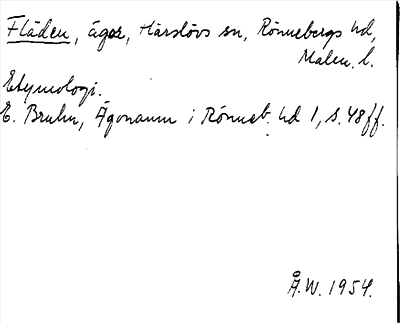 Fläden, ägor, Härslövs sn, Rönnebergs hd,
Malm. l.
Etymologi.
E. Bruhn, Ägonamn i Rönneb. hd 1, s. 48 ff.
Å.W. 1954.